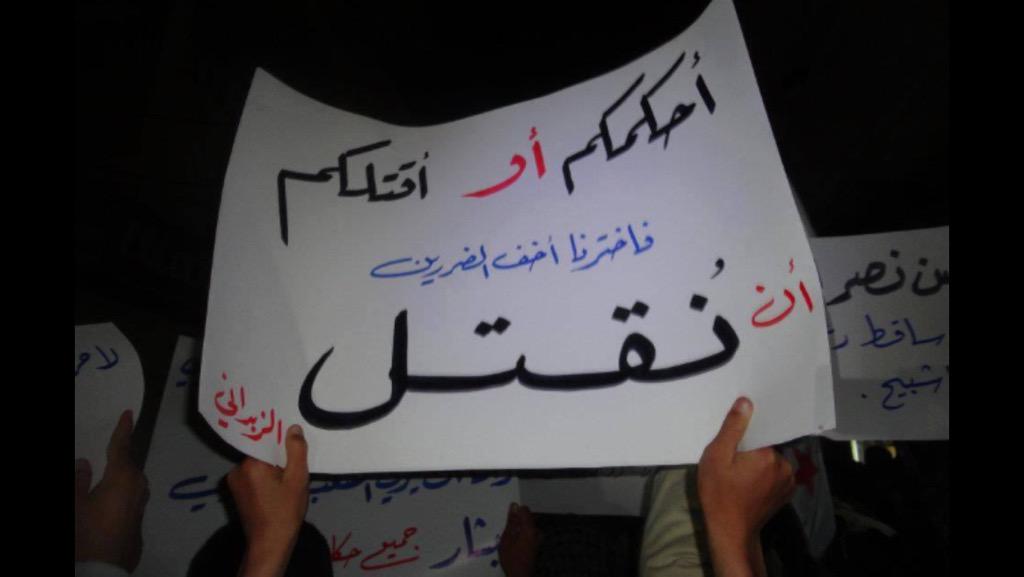 أحكمكم أو أقتلكم
فاخترنا أخف الضررين
أن نُقتل
الزبداني
نصر
ساقط
جميع